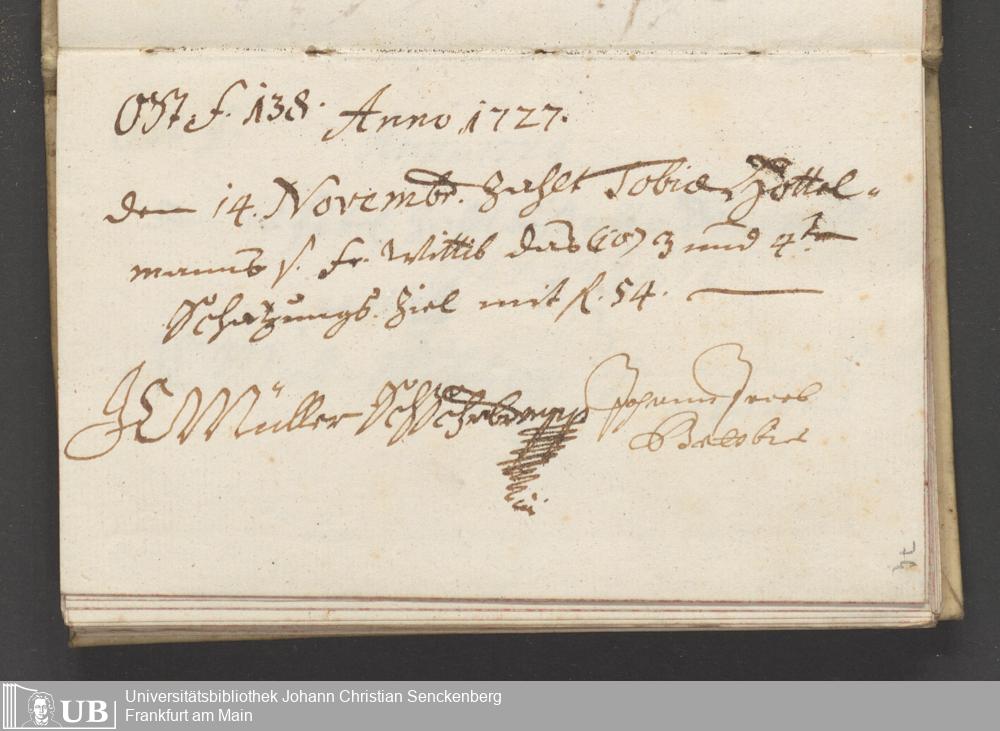 f. 138. Anno 1727.
den 14. Novembr. Zahlt Tobiæ Hottel-
manns s. fr. Wittib das 3 und 4te
Schatzungs Ziel mit fl. 54.
Müller Johannes Jacob
7t
Universitätsbibliothek Johann Christian Senckenberg
Frankfurt am Main
UB